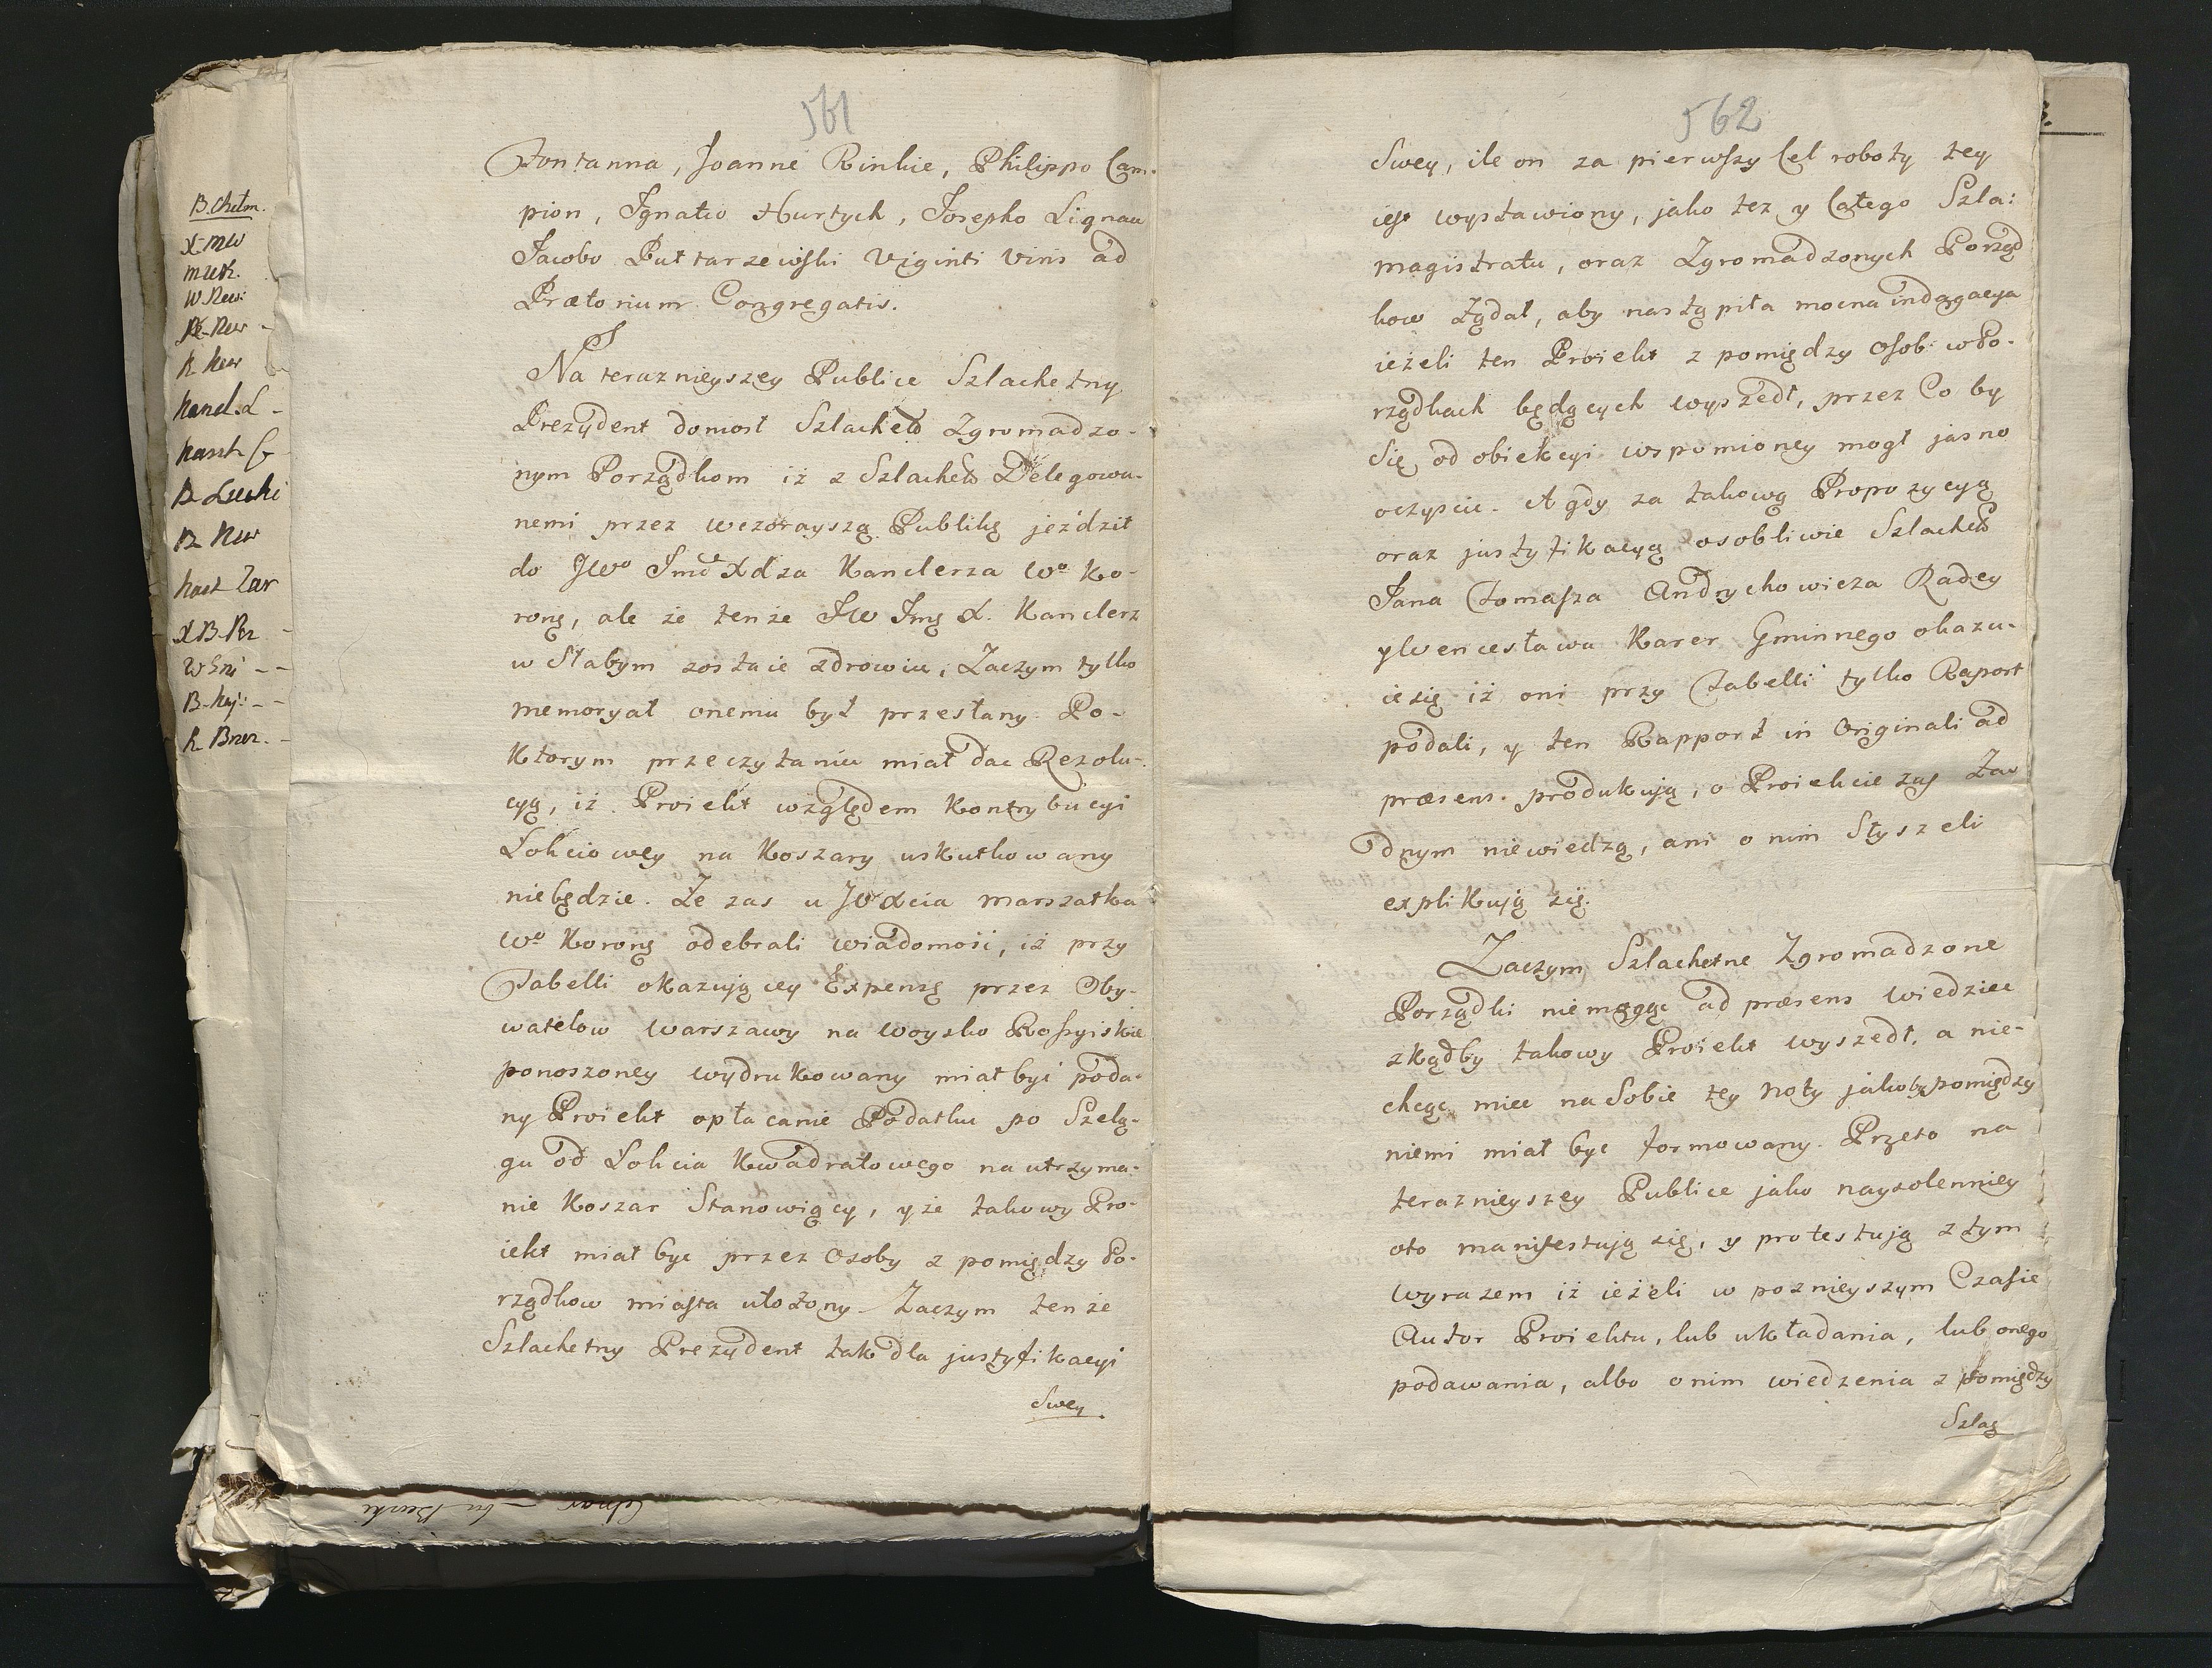 B. Chełm.
X. mw
muk.
W. Kew:
K. Kew
Kanel. L -
Kaszt
B. Lucki
B. Kew
Kaszt Zar
X B. Ks.
B. Kij: - -
K. Brzez. -
561
Fontanna, Joanne Rinkie, Philippo Cam-
pion, Ignatio Hurtych, Josepho Lignau
Jacobo Putkarzewski Viginti Viris ad
Prætorium Congregatis.
Na teraznieyszey Publice Szlachetny
Prezydent doniosł Szlachetn Zgromadzo-
nym Porządkom iż z Szlachetn Delegowa-
nemi przez wczorayszą Publikę jeździł
do JWo Imć Xdza Kanclerza Wo Ko-
ronę, ale że tenże JW Img X. Kanclerz
w Słabym zostaie zdrowiu, Zaczym tylko
memoryał onemu był przesłany Po-
ktorym przeczytaniu miał dac Rezolu-
cyą, iż Proiekt względem Kontrybucyi
Łokciowey na Koszary uskutkowany
niebędzie. Że zas u JO Xcia marszałka
Wo Koronę odebrali wiadomość, iż przy
Tabelli okazuiącey Expensę przez Oby-
watelow Warszawy na Woysko Rossyiskie
ponoszoney wydrukowany miał być poda-
ny Proiekt opłacanie Podatku po Szelą-
gu od Łokcia Kwadratowego na utrzyma-
nie Koszar Stanowiący, y że takowy Pro-
iekt miał byc przez Osoby z pomiędzy Po-
rządkow miasta ułożony. Zaczym tenże
Szlachetny Prezydent tak dla justyfikacyi
Swey
562
Swey, ile on za pierwszy Cel roboty tey
iest wystawiony, jako tez y Całego Szla:
magistratu, oraz Zgromadzonych Porząd
kow Żądał, aby nastąpiła mocna indagacya
ieżeli ten Proiekt z pomiędzy Osob w Po-
rządkach będących wyszedł, przez Co by
Się od obiekcyi wspomioney mogł jasno
oczyscic. A gdy za takową Propozycyą
oraz justyfikacyą osobliwie Szlachetn
Jana Tomasza Andrychowicza Radcy
y Wencesława Karer Gminnego okazu-
ie się iż oni przy Tabelli tylko Raport
podali, y ten Rapport in Originali ad
præsens produkują, o Proiekcie zas Ża
dnym niewiedzą, ani o nim Słyszeli
explikują się.
Zaczym Szlachetne Zgromadzone
Porządki niemogąc ad præsens wiedziec
zkądby takowy Proiekt wyszedł, a nie-
chcąc miec na Sobie tey noty jakoby pomiędzy
niemi miał byc formowany. Przeto na
teraznieyszey Publice jako naysolenniey
oto manifestują się, y protestują z tym
wyrazem iż ieżeli w poznieyszym Czasie
Autor Proiektu, lub układania, lub onego
podawania, albo o nim wiedzenia z pomiędzy
Szlag